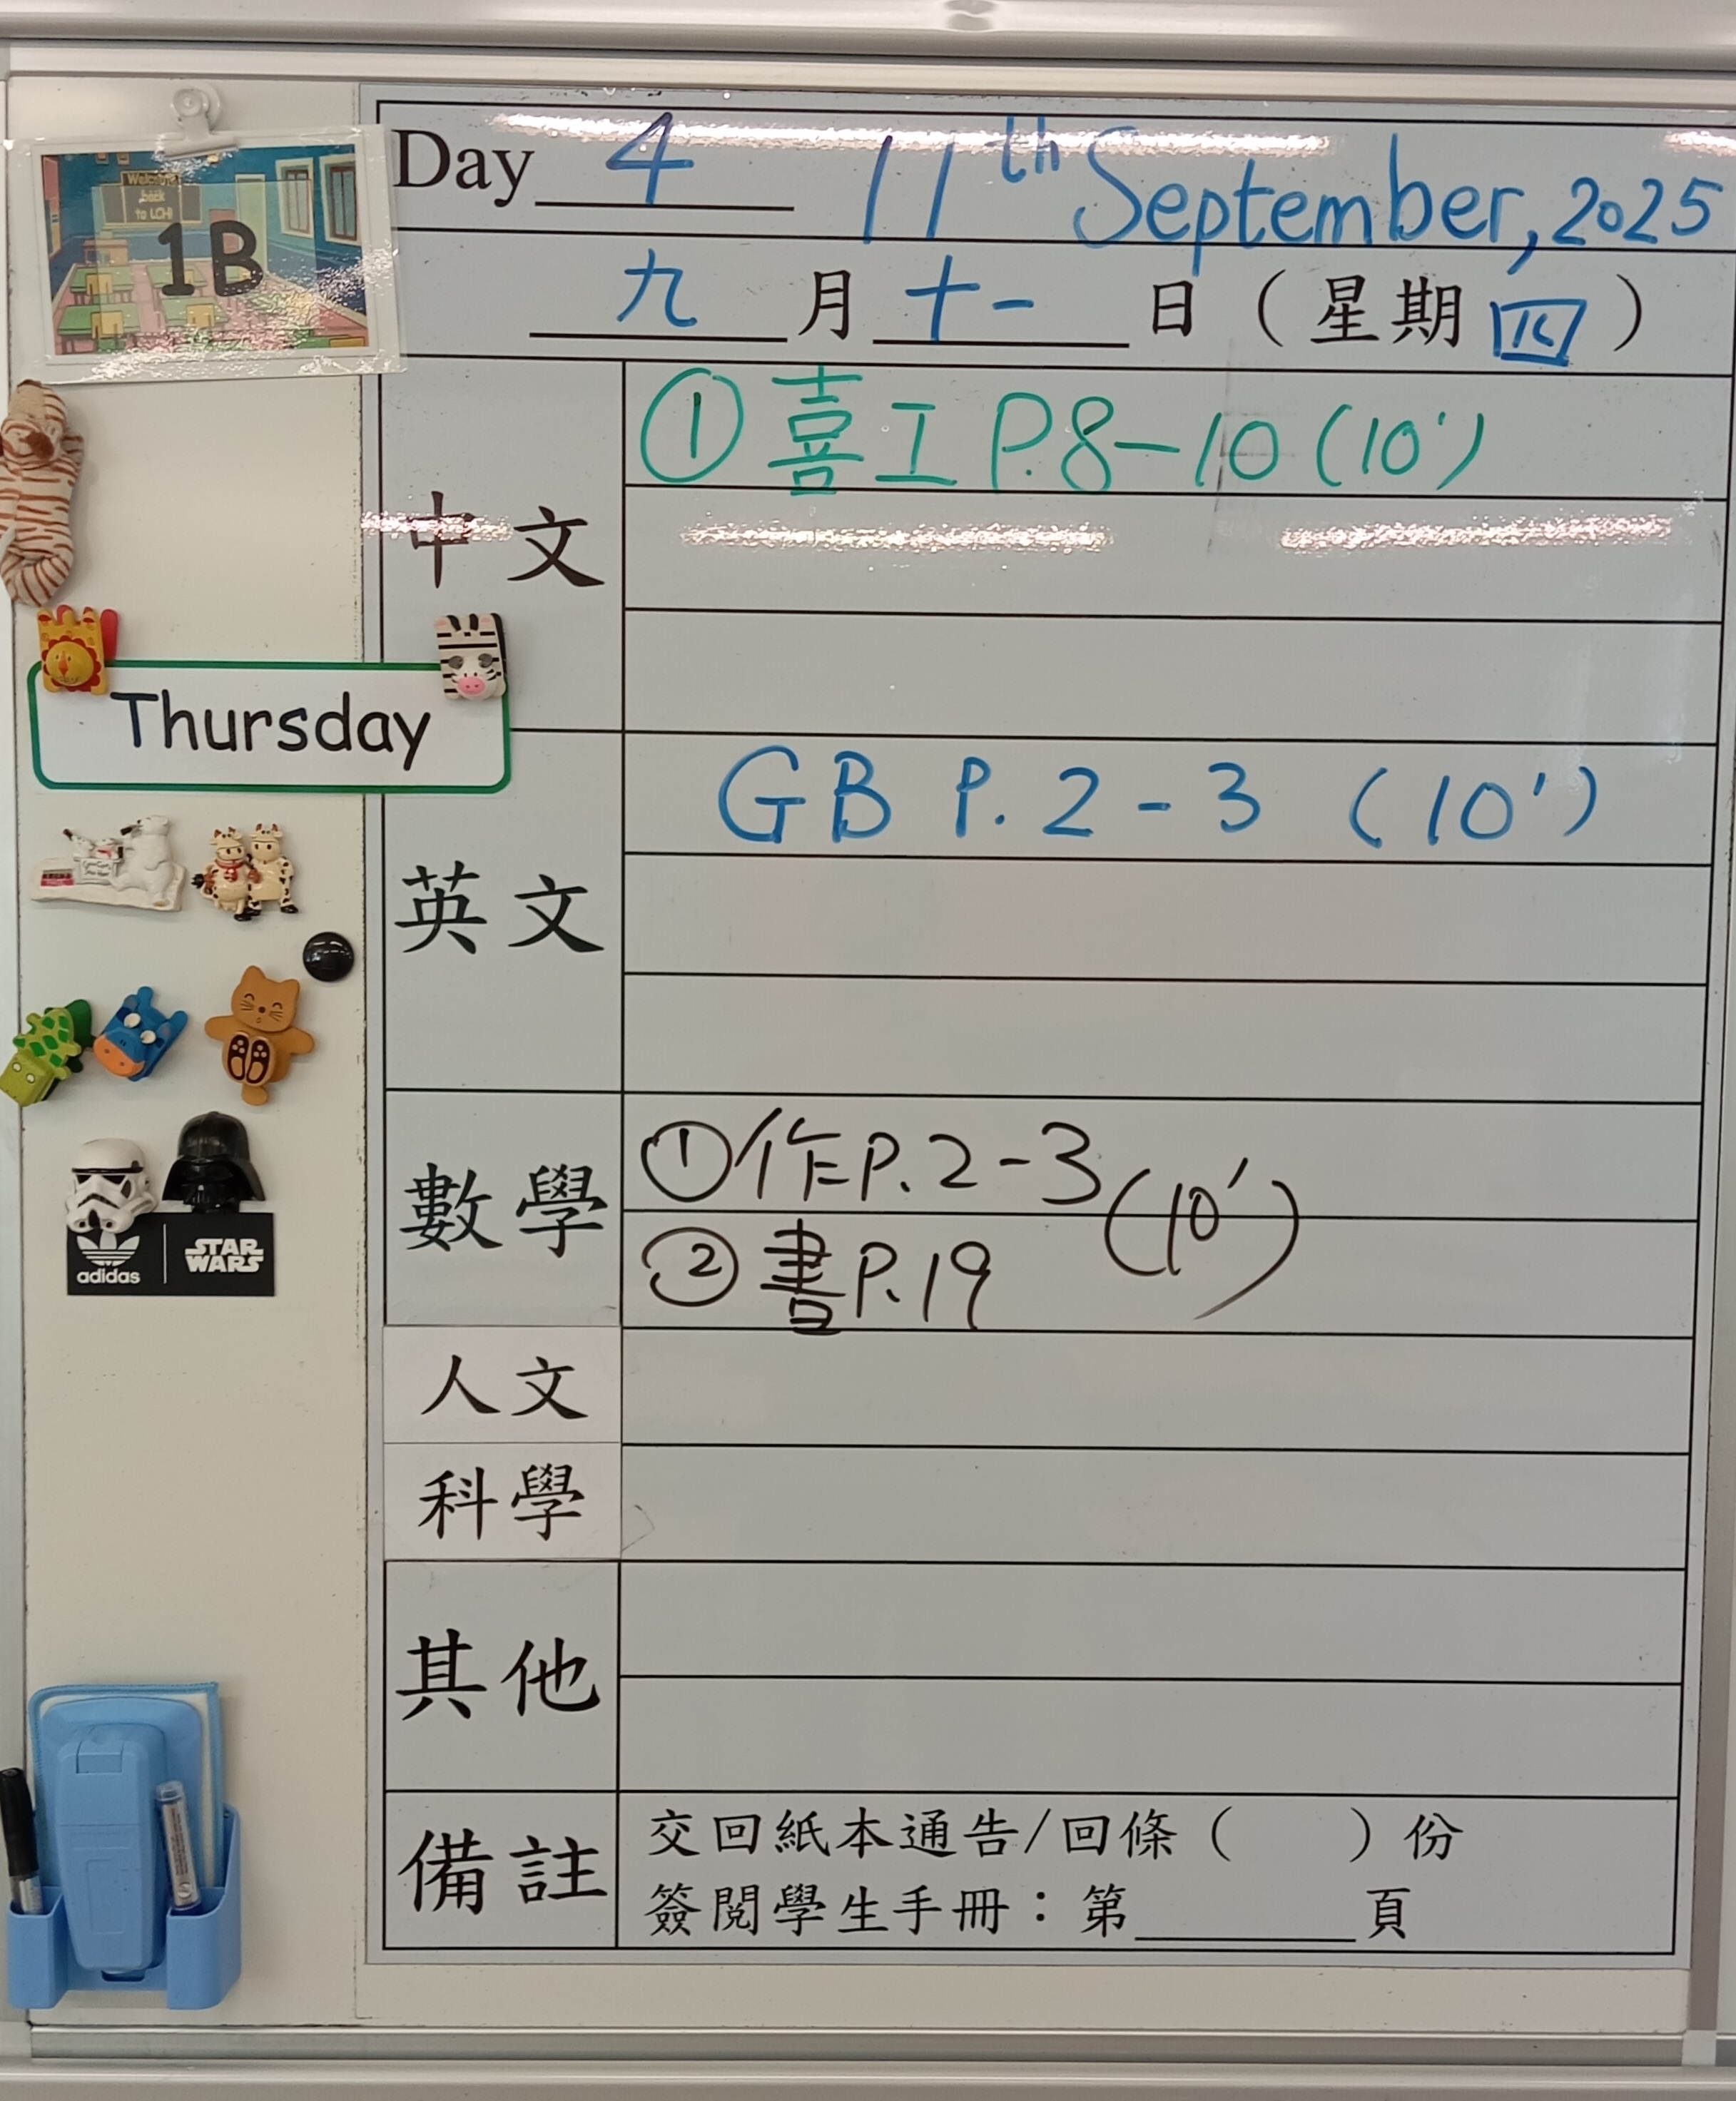 Welcome
back
to LCH!
1B
Day 4 11th September, 2025
九月十一日（星期四）
中文
① 喜工 P.8-10 (10')
Thursday
英文
GB P. 2-3 (10')
數學
① 作 P. 2-3
(10')
② 書 P. 19
adidas
STAR WARS
人文
科學
其他
備註
交回紙本通告/回條（ ）份
簽閱學生手冊：第______頁